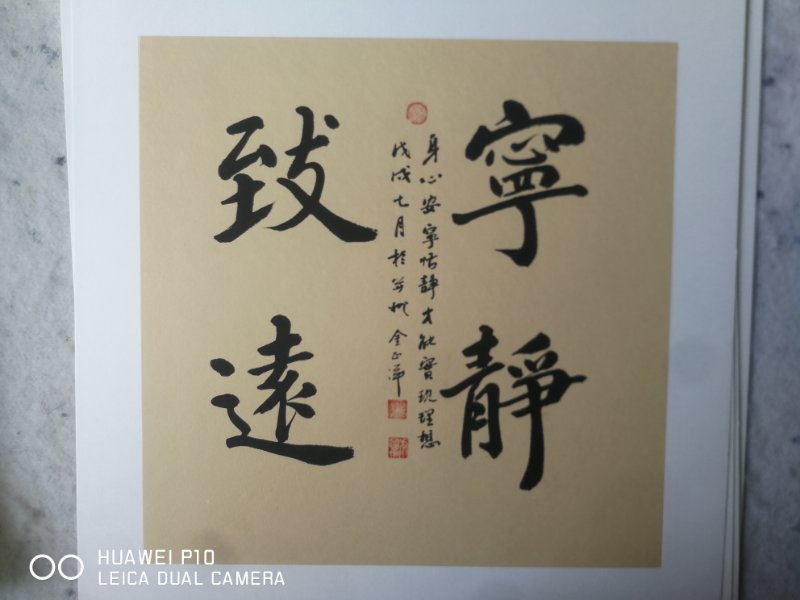 寧靜
致遠
身心安寧恬靜才能實現理想
戊戌七月於
HUAWEI P10
LEICA DUAL CAMERA